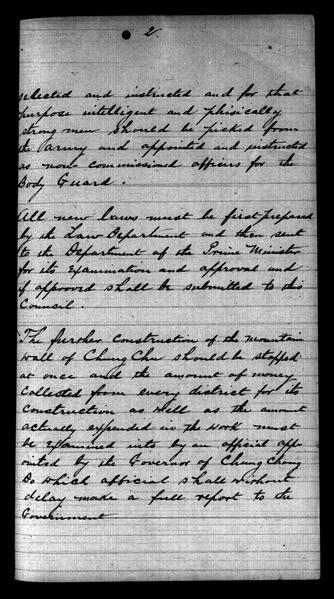 2.
selected and instructed and for that
purpose intelligent and phisically
strong men should be picked from
the army and appointed and instructed
as non commissioned officers for the
Body Guard.
All new laws must be first prepared
by the Law Department and then sent
to the Department of the Prime Minister
for its examination and approval and
if approved shall be submitted to this
Council.
The further construction of the mountain
wall of Chung Chu should be stopped
at once and the amount of money
collected from every district for its
construction as well as the amount
actually expended in the work must
be examined into by an official app-
ointed by the Governor of Chung Chong
Do which official shall without
delay make a full report to the
Government